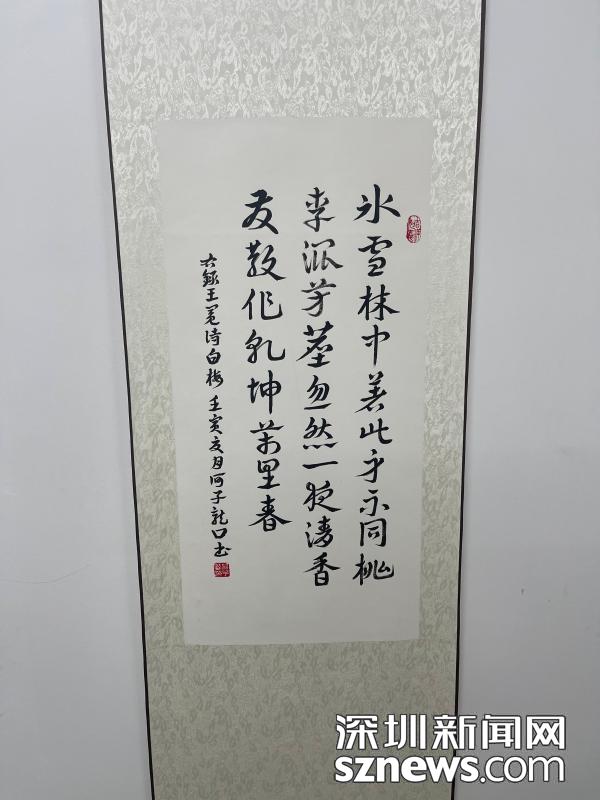 冰雪林中著此身不同桃
李混芳塵忽然一夜清香
发散作乾坤萬里春
右録王冕诗白梅 壬寅月子龍口书
深圳新闻网
sznews.com